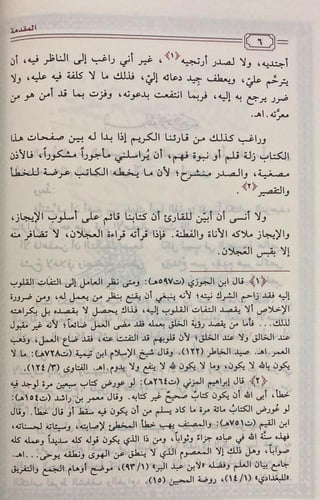 المقدمة
٦
أجتديه، ولا لصدر أرتجيه(١)، غير أني راغب إلى الناظر فيه، أن
يترحّم عليّ، ويعطف جيد دعائه إليّ، فذلك ما لا كلفة فيه عليه، ولا
ضرر يرجع به إليه، فربما انتفعت بدعوته، وفزت بما قد أمن هو من
معرّته. اهـ.
وراغب كذلك من قارئنا الكريم إذا بدا له بين صفحات هذا
الكتاب زلة قلم أو نبوة فهم، أن يُراسلني مأجوراً مشكوراً، فالأذن
مصغية، والصدر منشرح؛ لأن ما يخطه الكاتب عرضة للخطأ
والتقصير(٢).
ولا أنسى أن أبيّن للقارئ أن كتابنا قائم على أسلوب الإيجاز،
والإيجاز ملاكه الأناة والفطنة. فإذا قرأته قراءة العجلان، لا تضافر منه
إلا بقبس العَجلان.
(١) قال ابن الجوزي (ت٥٩٧هـ): ومتى نظر العامل إلى التفات القلوب
إليه فقد زاحم الشرك نيته؛ لأنه ينبغي أن يقنع بنظر من يعمل له، ومن ضرورة
الإخلاص ألا يقصد التفات القلوب إليه، فذاك يحصل لا بقصده بل بكراهته
لذلك... فأما من يقصد رؤية الخلق بعمله فقد مضى العمل ضائعاً؛ لأنه غير مقبول
عند الخالق ولا عند الخلق؛ لأن قلوبهم قد التفتت عنه، فقد ضاع العمل، وذهب
العمر. اهـ. صيد الخاطر (١٢٢). وقال شيخ الإسلام ابن تيمية (ت٧٢٨هـ): ما لا
يكون بالله لا يكون، وما لا يكون لله لا ينفع ولا يدوم. اهـ. الفتاوى (١٢٤/٣).
(٢) قال إبراهيم المزني (ت٢٦٤هـ): لو عورض كتاب سبعين مرة لوجد فيه
خطأ، أبى الله أن يكون كتابٌ صحيحٌ غير كتابه. وقال معمر بن راشد (ت١٥٤هـ):
لو عُورض الكتابُ مائة مرة ما كاد يسلم من أن يكون فيه سقط أو قال خطأ. وقال
ابن القيم (ت٧٥١هـ): والمنصف يهب خطأ المخطئ لإصابته، وسيئاته لحسناته،
فهذه سنَّة الله في عباده جزاءً وثواباً، ومن ذا الذي يكون قوله كله سديداً وعمله كله
صواباً، وهل ذلك إلا المعصوم الذي لا ينطق عن الهوى ونطقه يوحى... اهـ.
جامع بيان العلم وفضله «لابن عبد البر» (٩٣/١)، موضح أوهام الجمع والتفريق
للبغدادي» (١٤/١)، روضة المحبين (١٥).